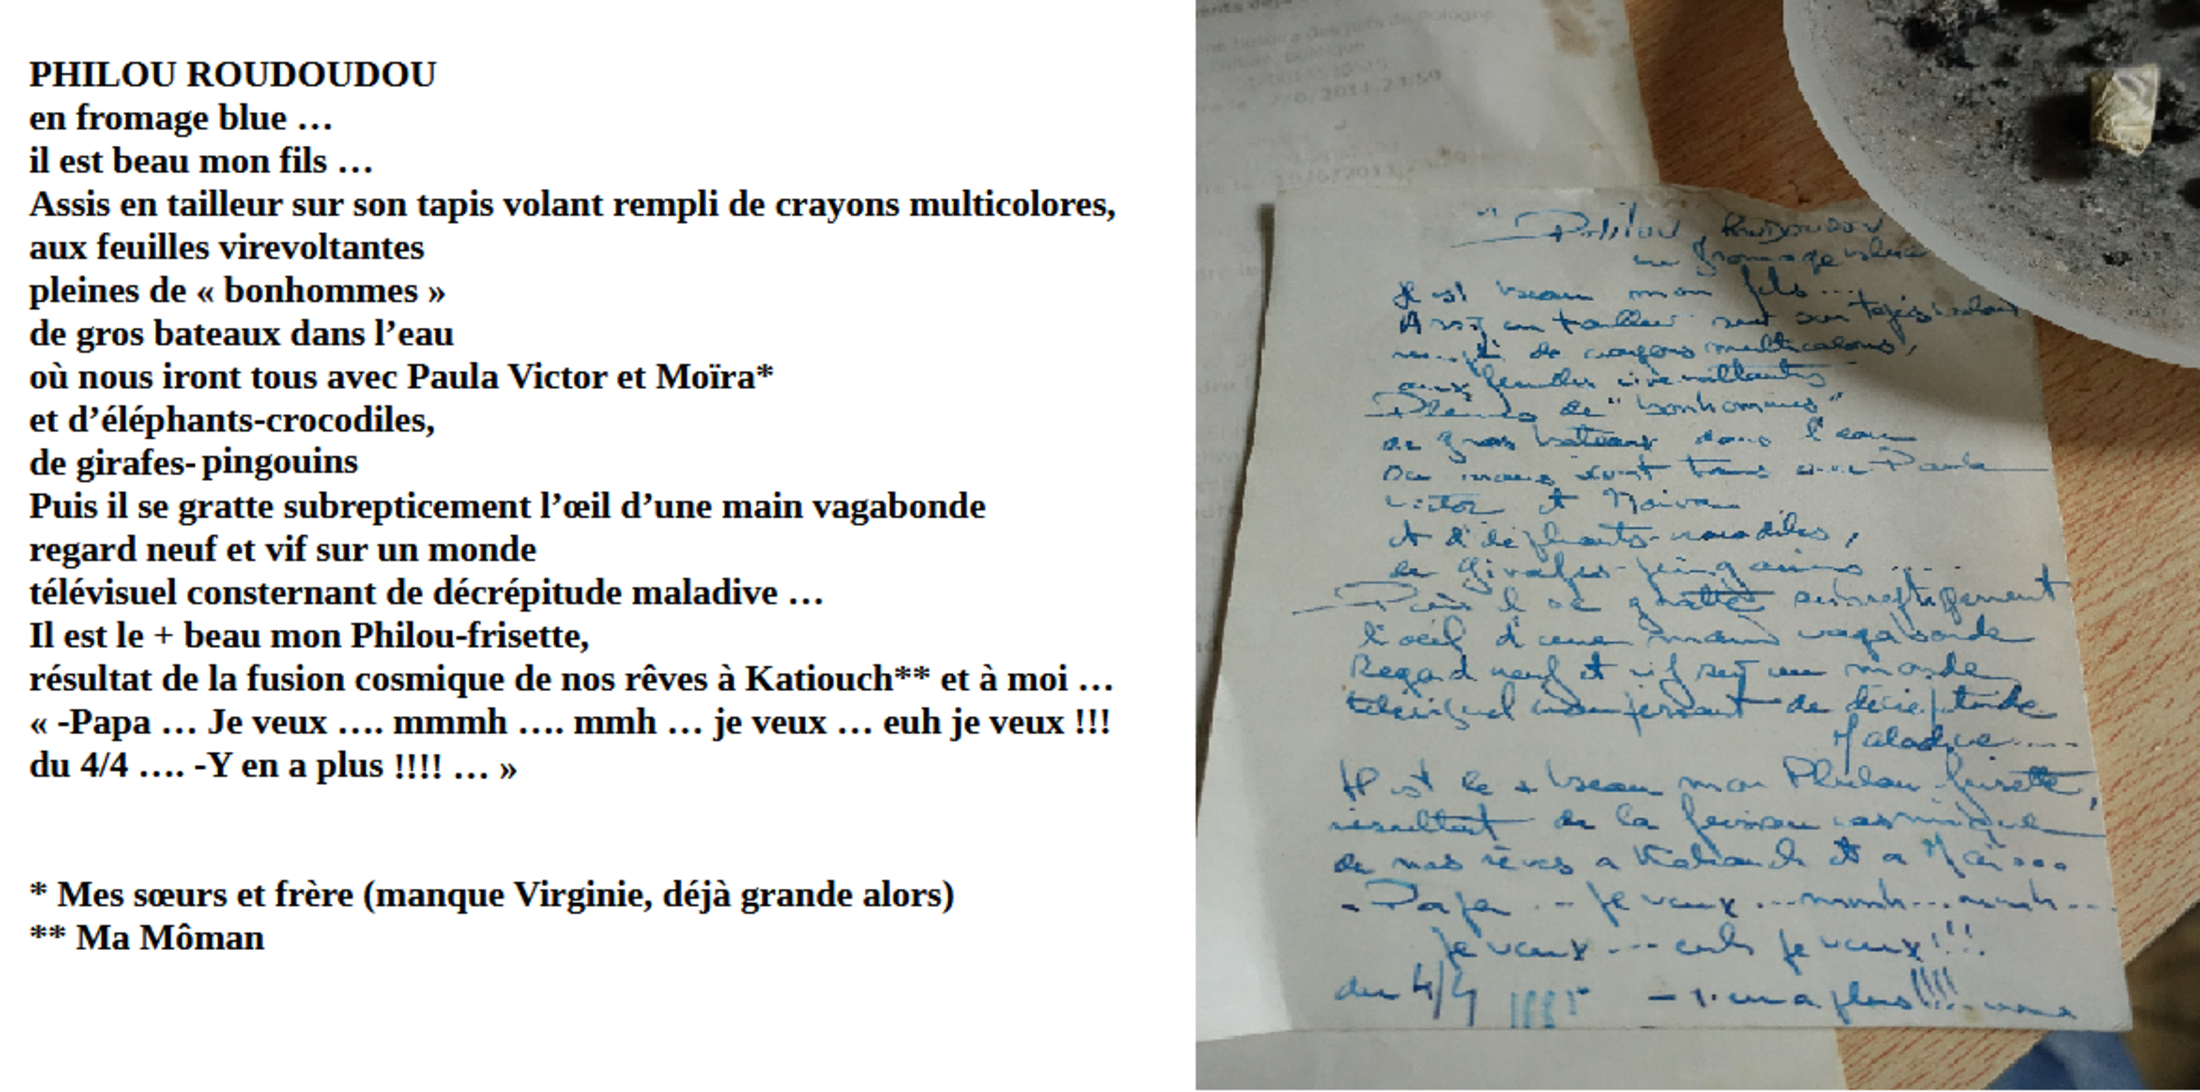 PHILOU ROUDOUDOU
en fromage blue …
il est beau mon fils …
Assis en tailleur sur son tapis volant rempli de crayons multicolores,
aux feuilles virevoltantes
pleines de « bonhommes »
de gros bateaux dans l’eau
où nous iront tous avec Paula Victor et Moïra*
et d’éléphants-crocodiles,
de girafes-pingouins
Puis il se gratte subrepticement l’œil d’une main vagabonde
regard neuf et vif sur un monde
télévisuel consternant de décrépitude maladive …
Il est le + beau mon Philou-frisette,
résultat de la fusion cosmique de nos rêves à Katiouch** et à moi …
« -Papa … Je veux …. mmmh …. mmh … je veux … euh je veux !!!
du 4/4 …. -Y en a plus !!!! … »
* Mes sœurs et frère (manque Virginie, déjà grande alors)
** Ma Môman
"Philou, Roudoudou
en fromage blue
Il est beau mon fils ...
Assis en tailleur sur son tapis volant
rempli de crayons multicolores,
aux feuilles virevoltantes
Pleines de "bonhommes"
de gros bateaux dans l'eau
Où nous iront tous avec Paula
Victor et Moïra
et d'éléphants-crocodiles,
de girafes-pingouins ....
Puis il se gratte subrepticement
l'oeil d'une main vagabonde
Regard neuf et vif sur un monde
télévisuel de décrépitude
Maladive .....
Il est le + beau mon Philou frisette,
résultat de la fusion cosmique
de nos rêves a Katiouch et a Moi...
- Papa ... je veux ...mmmh...mmmh...
je veux ... euh je veux !!!
du 4/4 !!!! - Y en a plus !!!!